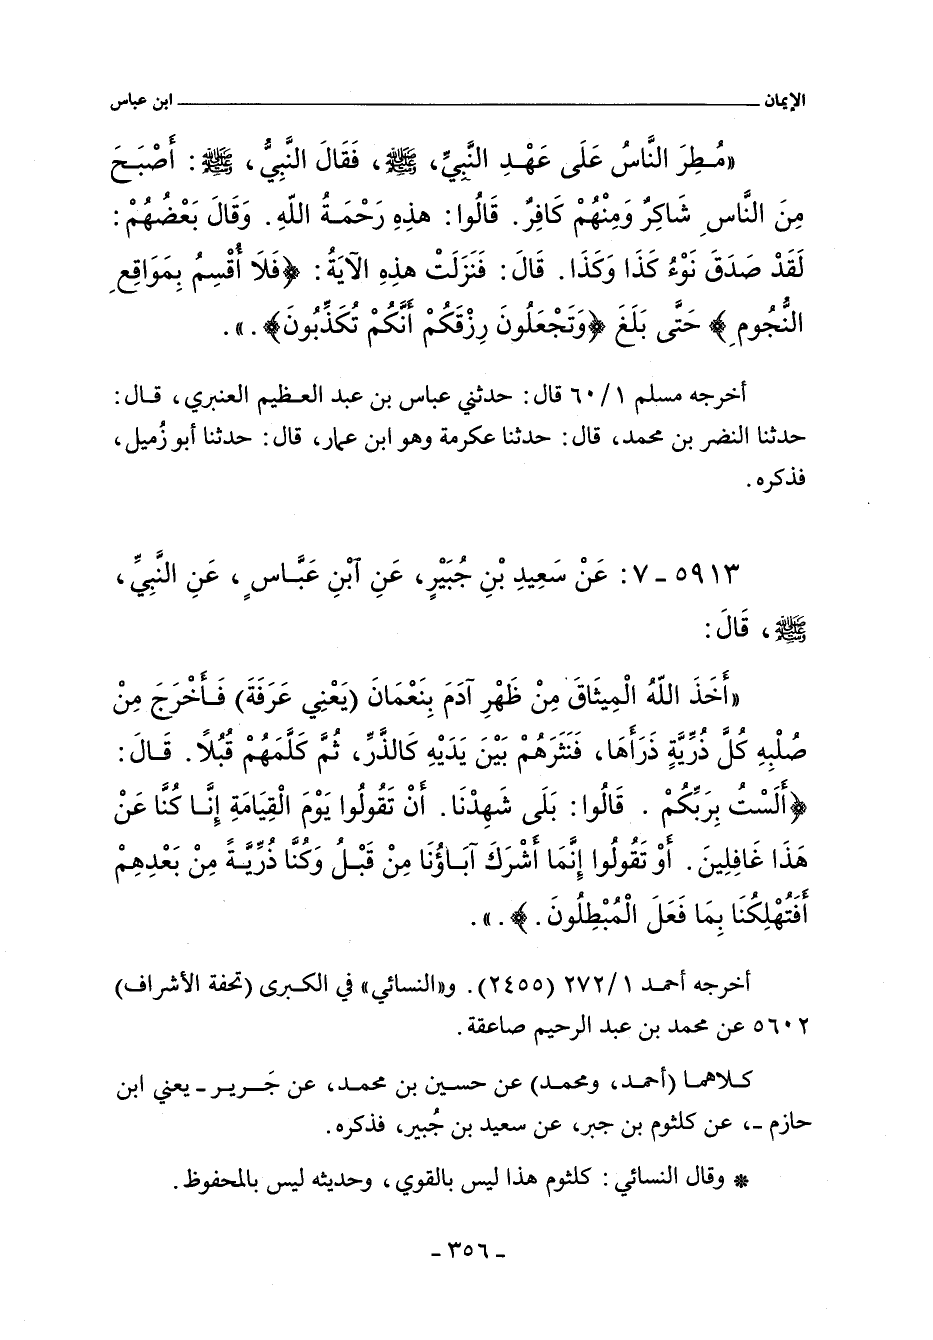 الإيمان ــــــــــــــــــــــــــــــــــــــــ ابن عباس
«مُطِرَ النَّاسُ عَلَى عَهْدِ النَّبِيِّ، ﷺ، فَقَالَ النَّبِيُّ، ﷺ: أَصْبَحَ
مِنَ النَّاسِ شَاكِرٌ وَمِنْهُمْ كَافِرٌ. قَالُوا: هذِهِ رَحْمَةُ اللّهِ. وَقَالَ بَعْضُهُمْ:
لَقَدْ صَدَقَ نَوْءُ كَذَا وَكَذَا. قَالَ: فَنَزَلَتْ هذِهِ الآيَةُ: ﴿فَلَا أُقْسِمُ بِمَوَاقِعِ
النُّجُومِ﴾ حَتَّى بَلَغَ ﴿وَتَجْعَلُونَ رِزْقَكُمْ أَنَّكُمْ تُكَذِّبُونَ﴾.».
أخرجه مسلم ٦٠/١ قال: حدثني عباس بن عبد العظيم العنبري، قال:
حدثنا النضر بن محمد، قال: حدثنا عكرمة وهو ابن عمار، قال: حدثنا أبو زُميل،
فذكره.
٥٩١٣ - ٧: عَنْ سَعِيدِ بْنِ جُبَيْرٍ، عَنِ آبْنِ عَبَّاسٍ، عَنِ النَّبِيِّ،
ﷺ، قَالَ:
«أَخَذَ اللّهُ الْمِيثَاقَ مِنْ ظَهْرِ آدَمَ بِنَعْمَانَ (يَعْنِي عَرَفَةَ) فَأَخْرَجَ مِنْ
صُلْبِهِ كُلَّ ذُرِّيَّةٍ ذَرَأَهَا، فَنَثَرَهُمْ بَيْنَ يَدَيْهِ كَالذَّرِّ، ثُمَّ كَلَّمَهُمْ قُبُلًا. قَالَ:
﴿أَلَسْتُ بِرَبِّكُمْ. قَالُوا: بَلَى شَهِدْنَا. أَنْ تَقُولُوا يَوْمَ الْقِيَامَةِ إِنَّا كُنَّا عَنْ
هَذَا غَافِلِينَ. أَوْ تَقُولُوا إِنَّمَا أَشْرَكَ آبَاؤُنَا مِنْ قَبْلُ وَكُنَّا ذُرِّيَةً مِنْ بَعْدِهِمْ
أَفَتُهْلِكُنَا بِمَا فَعَلَ الْمُبْطِلُونَ.﴾.».
أخرجه أحمد ٢٧٢/١ (٢٤٥٥). و«النسائي» في الكبرى (تحفة الأشراف)
٥٦٠٢ عن محمد بن عبد الرحيم صاعقة.
كلاهما (أحمد، ومحمد) عن حسين بن محمد، عن جَرير - يعني ابن
حازم -، عن كلثوم بن جبر، عن سعيد بن جُبير، فذكره.
* وقال النسائي: كلثوم هذا ليس بالقوي، وحديثه ليس بالمحفوظ.
- ٣٥٦ -